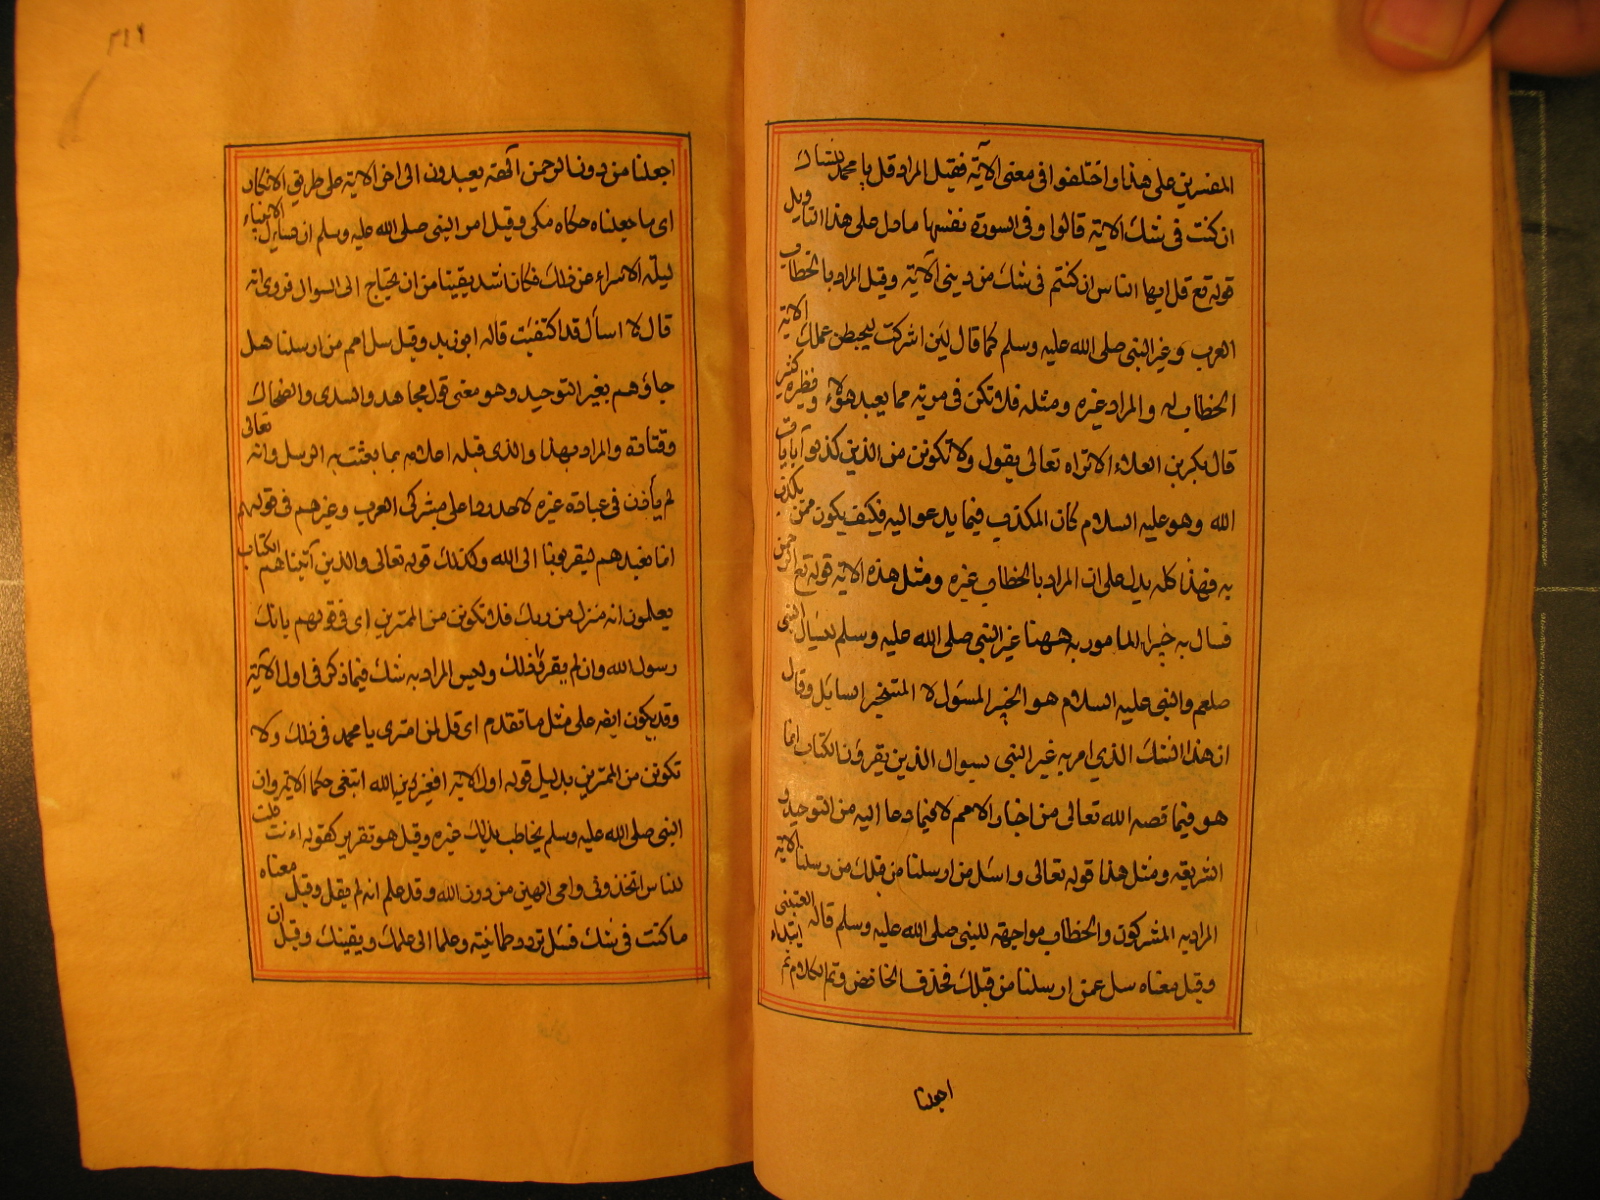 المفسرين على هذا واختلفوا فى معنى الآية فقيل المراد قل يا محمد لشاك
ان كنت فى شك الاية قالوا وفى السورة نفسها ما دل على هذا التاويل
قوله تع قل ايها الناس ان كنتم فى شك من دينى الآية وقيل المراد بالخطاب
العرب وغير النبى صلى الله عليه وسلم كما قال لين اشركت ليحبطن عملك الاية
الخطاب له والمراد غيره ومثله فلا تكن فى مرية مما يعبد هؤلاء ونظيره كثير
قال بكر بن العلاء الا تراه تعالى يقول ولا تكونن من الذين كذبوا بآيات
الله وهو عليه السلام كان المكذب فيما يدعو اليه فكيف يكون ممن يكذب
به فهذا كله يدل على ان المراد بالخطاب غيره ومثل هذه الاية قوله تع الرحمن
فسال به خبيرا المامور به ههنا غير النبى صلى الله عليه وسلم ليسال النبى
صلعم والنبى عليه السلام هو الخبير المسؤل لا المستخبر السايل وقال
ان هذا الشك الذي امر به غير النبى بسوال الذين يقرؤن الكتاب انما
هو فيما قصه الله تعالى من اخبار الامم لا فيما دعا اليه من التوحيد و
الشريعة ومثل هذا قوله تعالى واسئل من ارسلنا من قبلك من رسلنا الاية
المراد به المشركون والخطاب مواجهة للنبى صلى الله عليه وسلم قاله العتبى
وقيل معناه سل عمن ارسلنا من قبلك فحذف الخافض وتم الكلام ثم ابتداء
اجعلنا
اجعلنا من دون الرحمن آلهة يعبدون الى اخر الاية على طريق الانكار
اى ما جعلناه حكاه مكى وقيل امر النبى صلى الله عليه وسلم ان يسايل الانبياء
ليلة الاسراء عن ذلك فكان اشد يقينا من ان يحتاج الى السوال فروى انه
قال لا اسأل قد اكتفيت قاله ابن زيد وقيل سل امم من ارسلنا هل
جاؤهم بغير التوحيد وهو معنى قول مجاهد والسدى والضحاك
وقتادة والمراد بهذا والذى قبله اعلامه بما بعثت به الرسل وانه تعالى
لم يأذن فى عبادة غيره لاحد ردا على مشركى العرب وغيرهم فى قولهم
انما نعبدهم ليقربونا الى الله وكذلك قوله تعالى والذين آتيناهم الكتاب
يعلمون انه منزل من ربك فلا تكونن من الممترين اى فى قولهم بانك
رسول الله وان لم يقروا ذلك وليس المراد به شك فيما ذكر فى اول الآية
وقد يكون ايضه على مثل ما تقدم اى قل لمن امترى يا محمد فى ذلك ولا
تكونن من الممترين بدليل قوله اول الآية افغير دين الله ابتغى حكما الاية وان
النبى صلى الله عليه وسلم يخاطب بذلك غيره وقيل هو تقرير كقوله اءنت قلت
للناس اتخذونى وامى الهين من دون الله وقد علم انه لم يقل وقيل معناه
ما كنت فى شك فسل تزدد طمانينة وعلما الى علمك ويقينك وقيل ان